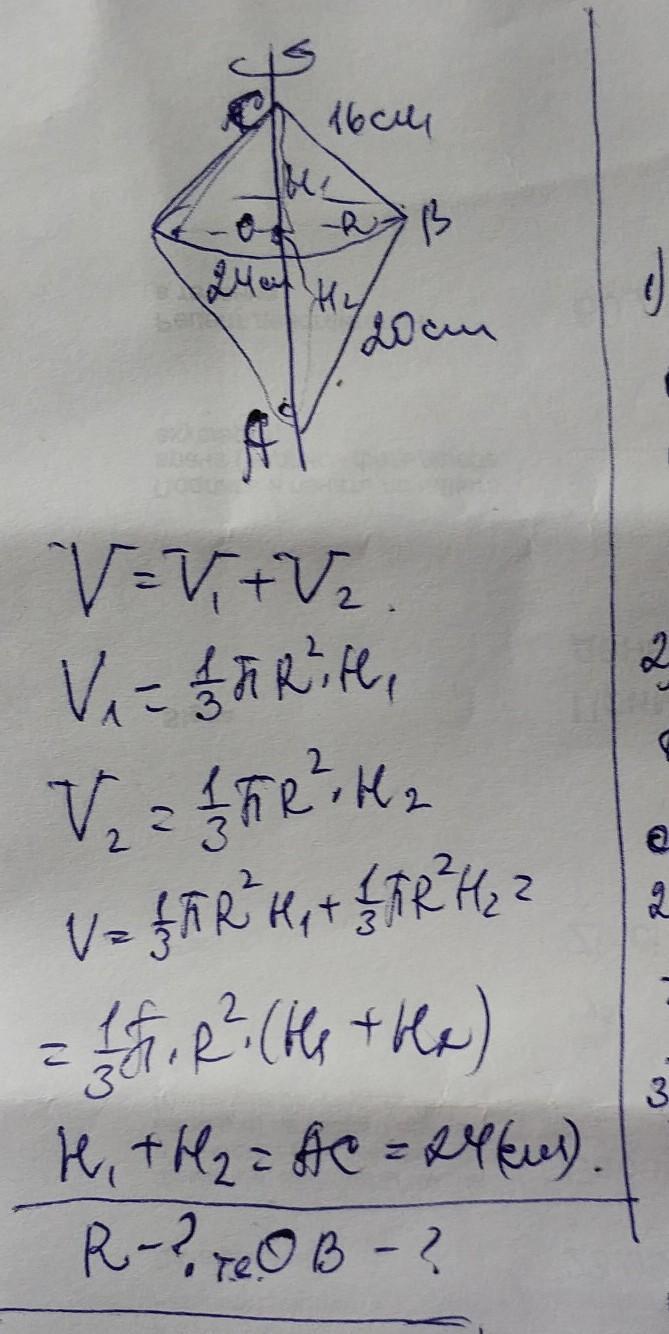 C 16см
H₁
O R B
24см H₂
20см
A
V = V₁ + V₂.
V₁ = 1/3 πR²·H₁
V₂ = 1/3 πR²·H₂
V = 1/3 πR²H₁ + 1/3 πR²H₂ =
= 1/3 π·R²·(H₁ + H₂)
H₁ + H₂ = AC = 24(см).
R - ? т.е. OB - ?
1)
2
2
3